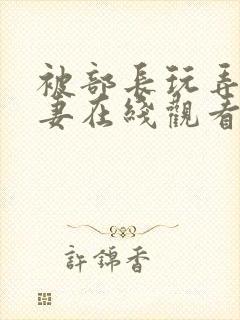 被部長玩弄
妻在綫觀看
許錦香